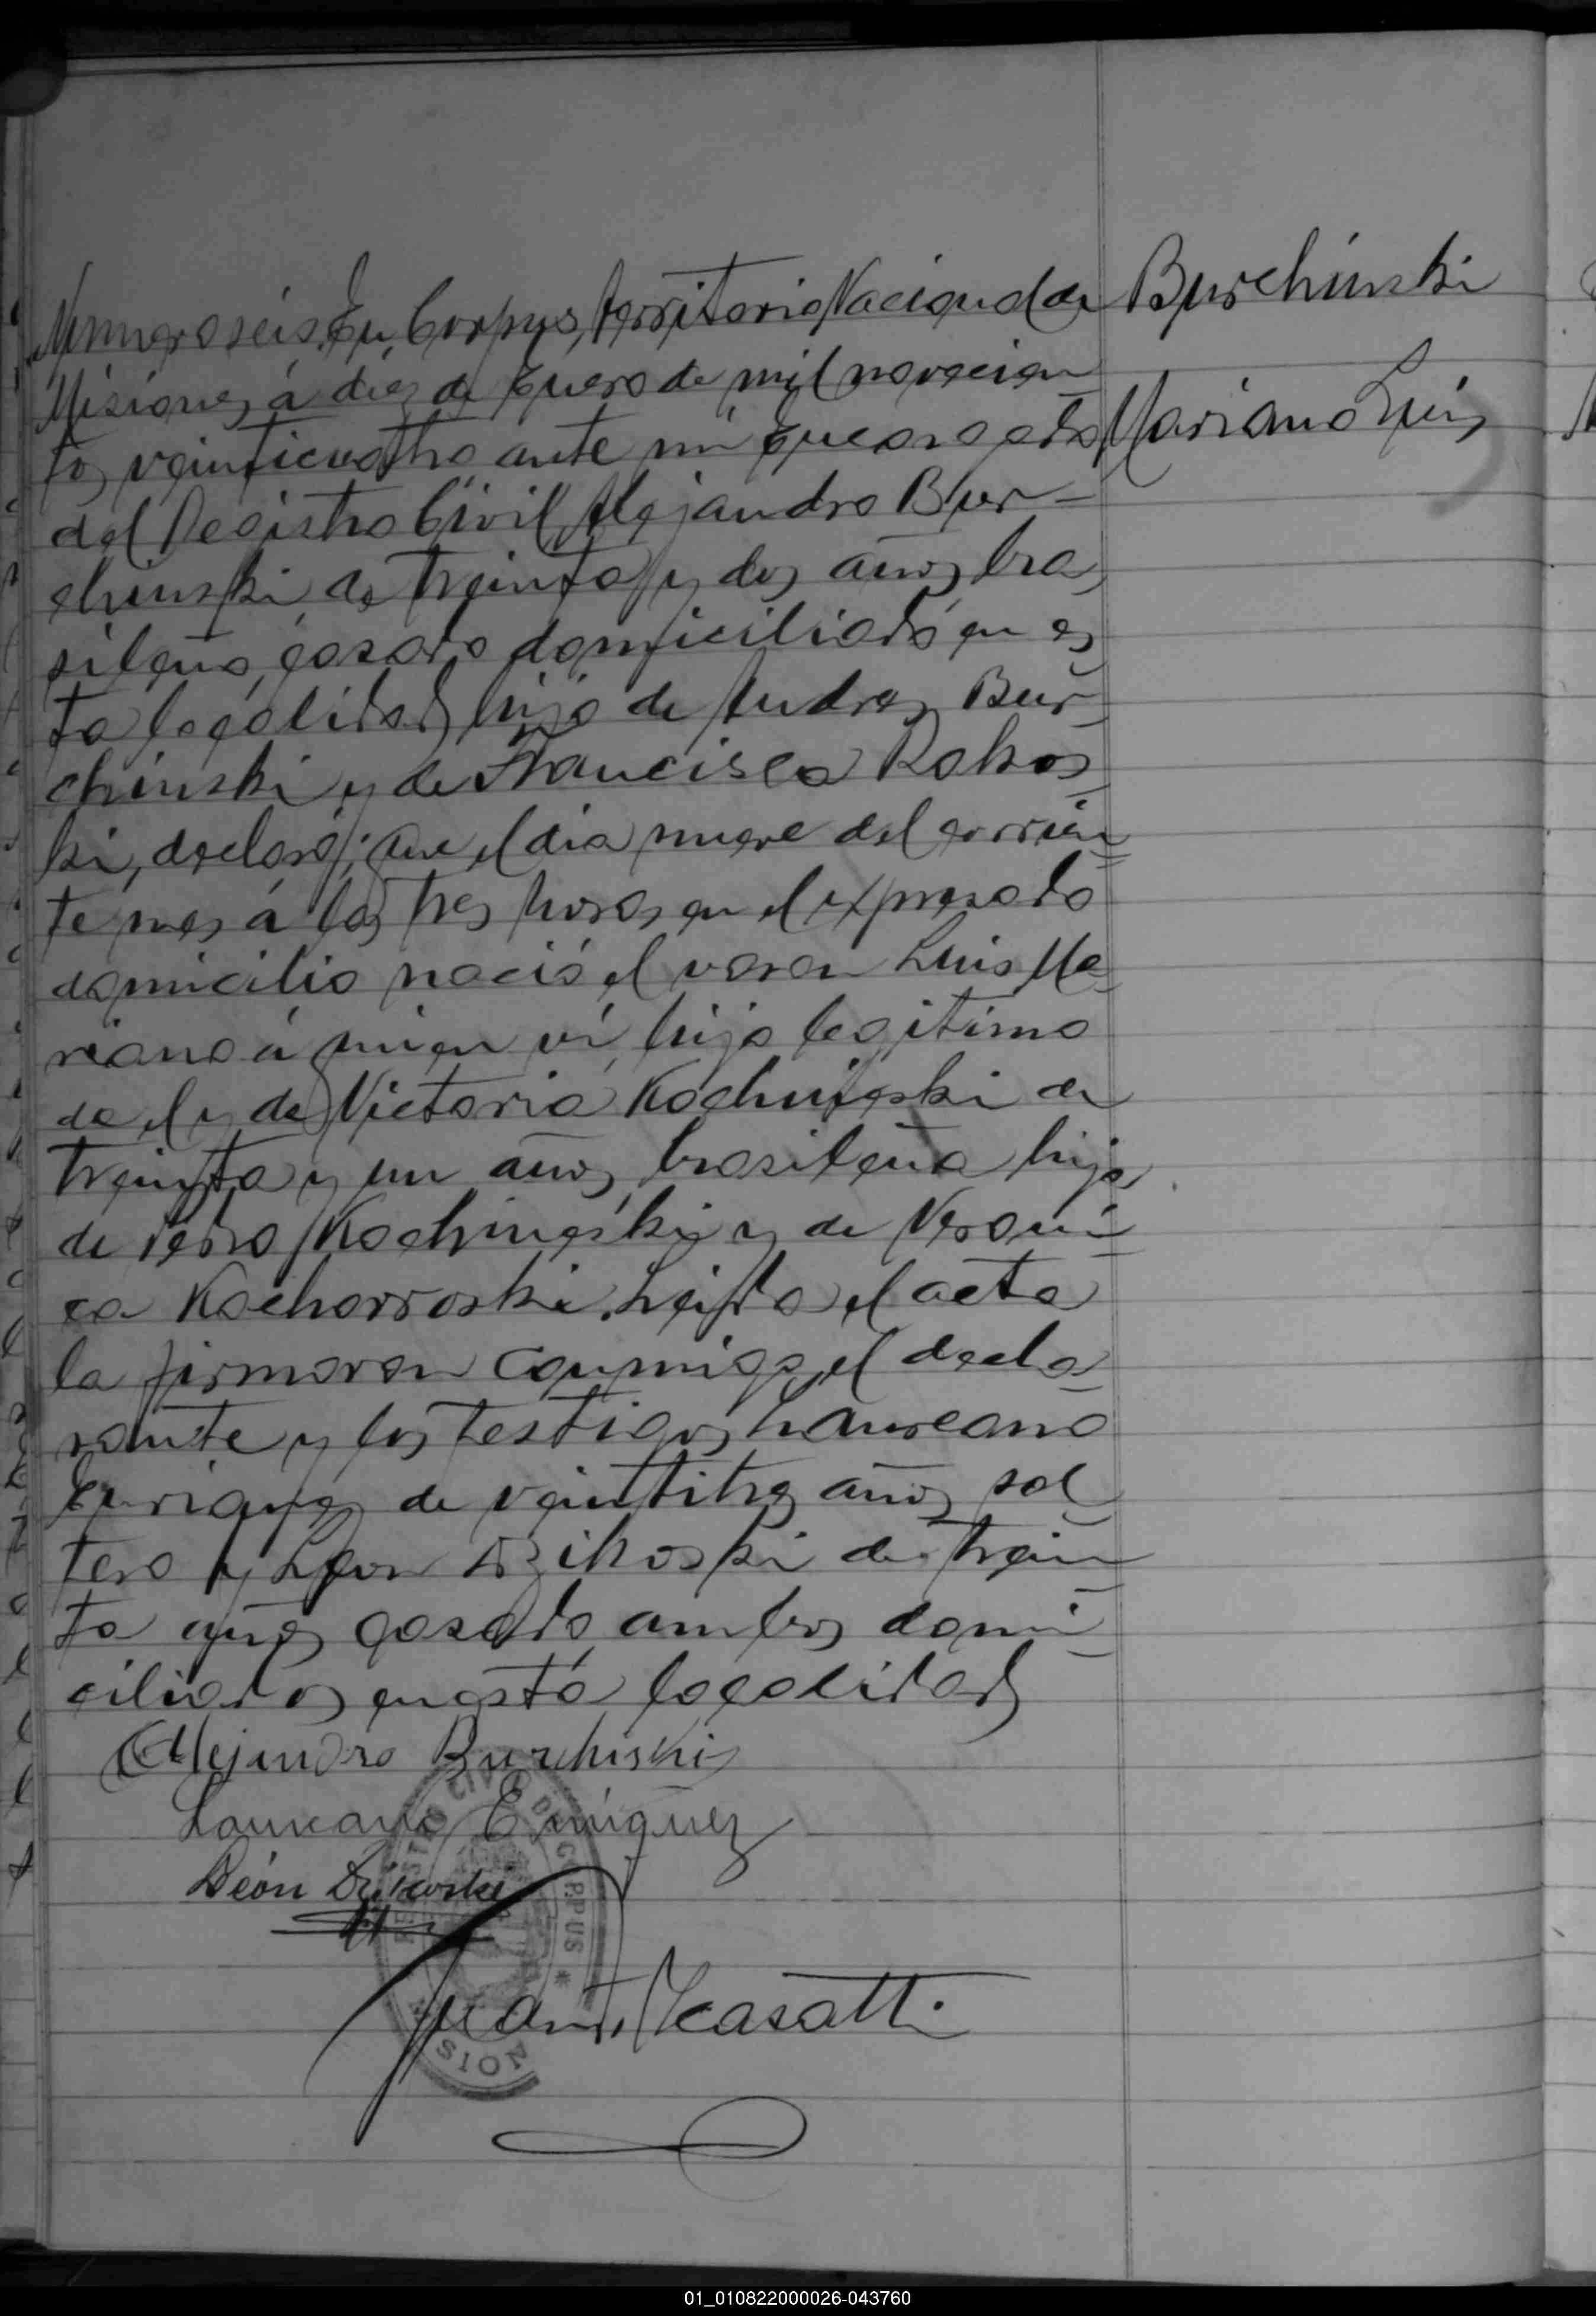 Burchinski
Mariano Luis
Numero seis. En Corpus, territorio Nacional de
Misiones, á diez de Enero de mil novecien
tos veinticuatro ante mi Encargado
del Registro Civil, Alejandro Bur-
chinski de treinta y dos años, bra
sileño, casado domiciliado en es
ta localidad, hijo de Andres Bur
chinski y de Francisca Rakos
ki, declaró; que el dia nueve del corrien
te mes á las tres horas en el expresado
domicilio nació el varon Luis Ma
riano á quien vi, hijo legitimo
de el y de Victoria Kochineski de
treinta y un años, brasileña hija
de Pedro Kochineski y de Veroni
ca Kachorroski. Leida el acta
la firmaron conmigo, el decla
rante y los testigos Laureano
Enriquez de veintitres años, sol
tero y Leon Dzikoski de trein
ta años casado ambos domi
ciliados en esta localidad
Alejandro Burchiski
Laureano Enriquez
León
Juan Casatti
REGISTRO CIVIL DE CORPUS *
01_010822000026-043760